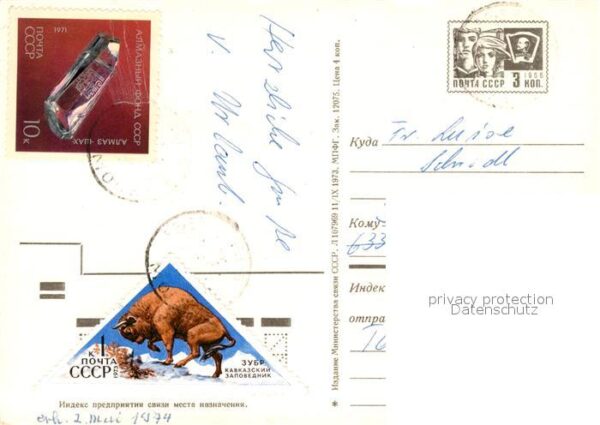 1971
ПОЧТА
СССР
АЛМАЗНЫЙ ФОНД СССР
АЛМАЗ „ШАХ“
10к
Herzliche Grüße
v. Urlaub.
1966
ПОЧТА СССР 3 КОП.
Куда Fr. Luise
Schmidl
Кому
633
Индек
отпра
privacy protection
Datenschutz
* Издание Министерства связи СССР. Л 107969 11/IX 1973. МПФГ. Зак. 12075. Цена 4 коп.
К 1
ПОЧТА
СССР
1973
ЗУБР
КАВКАЗСКИЙ
ЗАПОВЕДНИК
Индекс предприятия связи места назначения.
erh. 2. Mai 1974